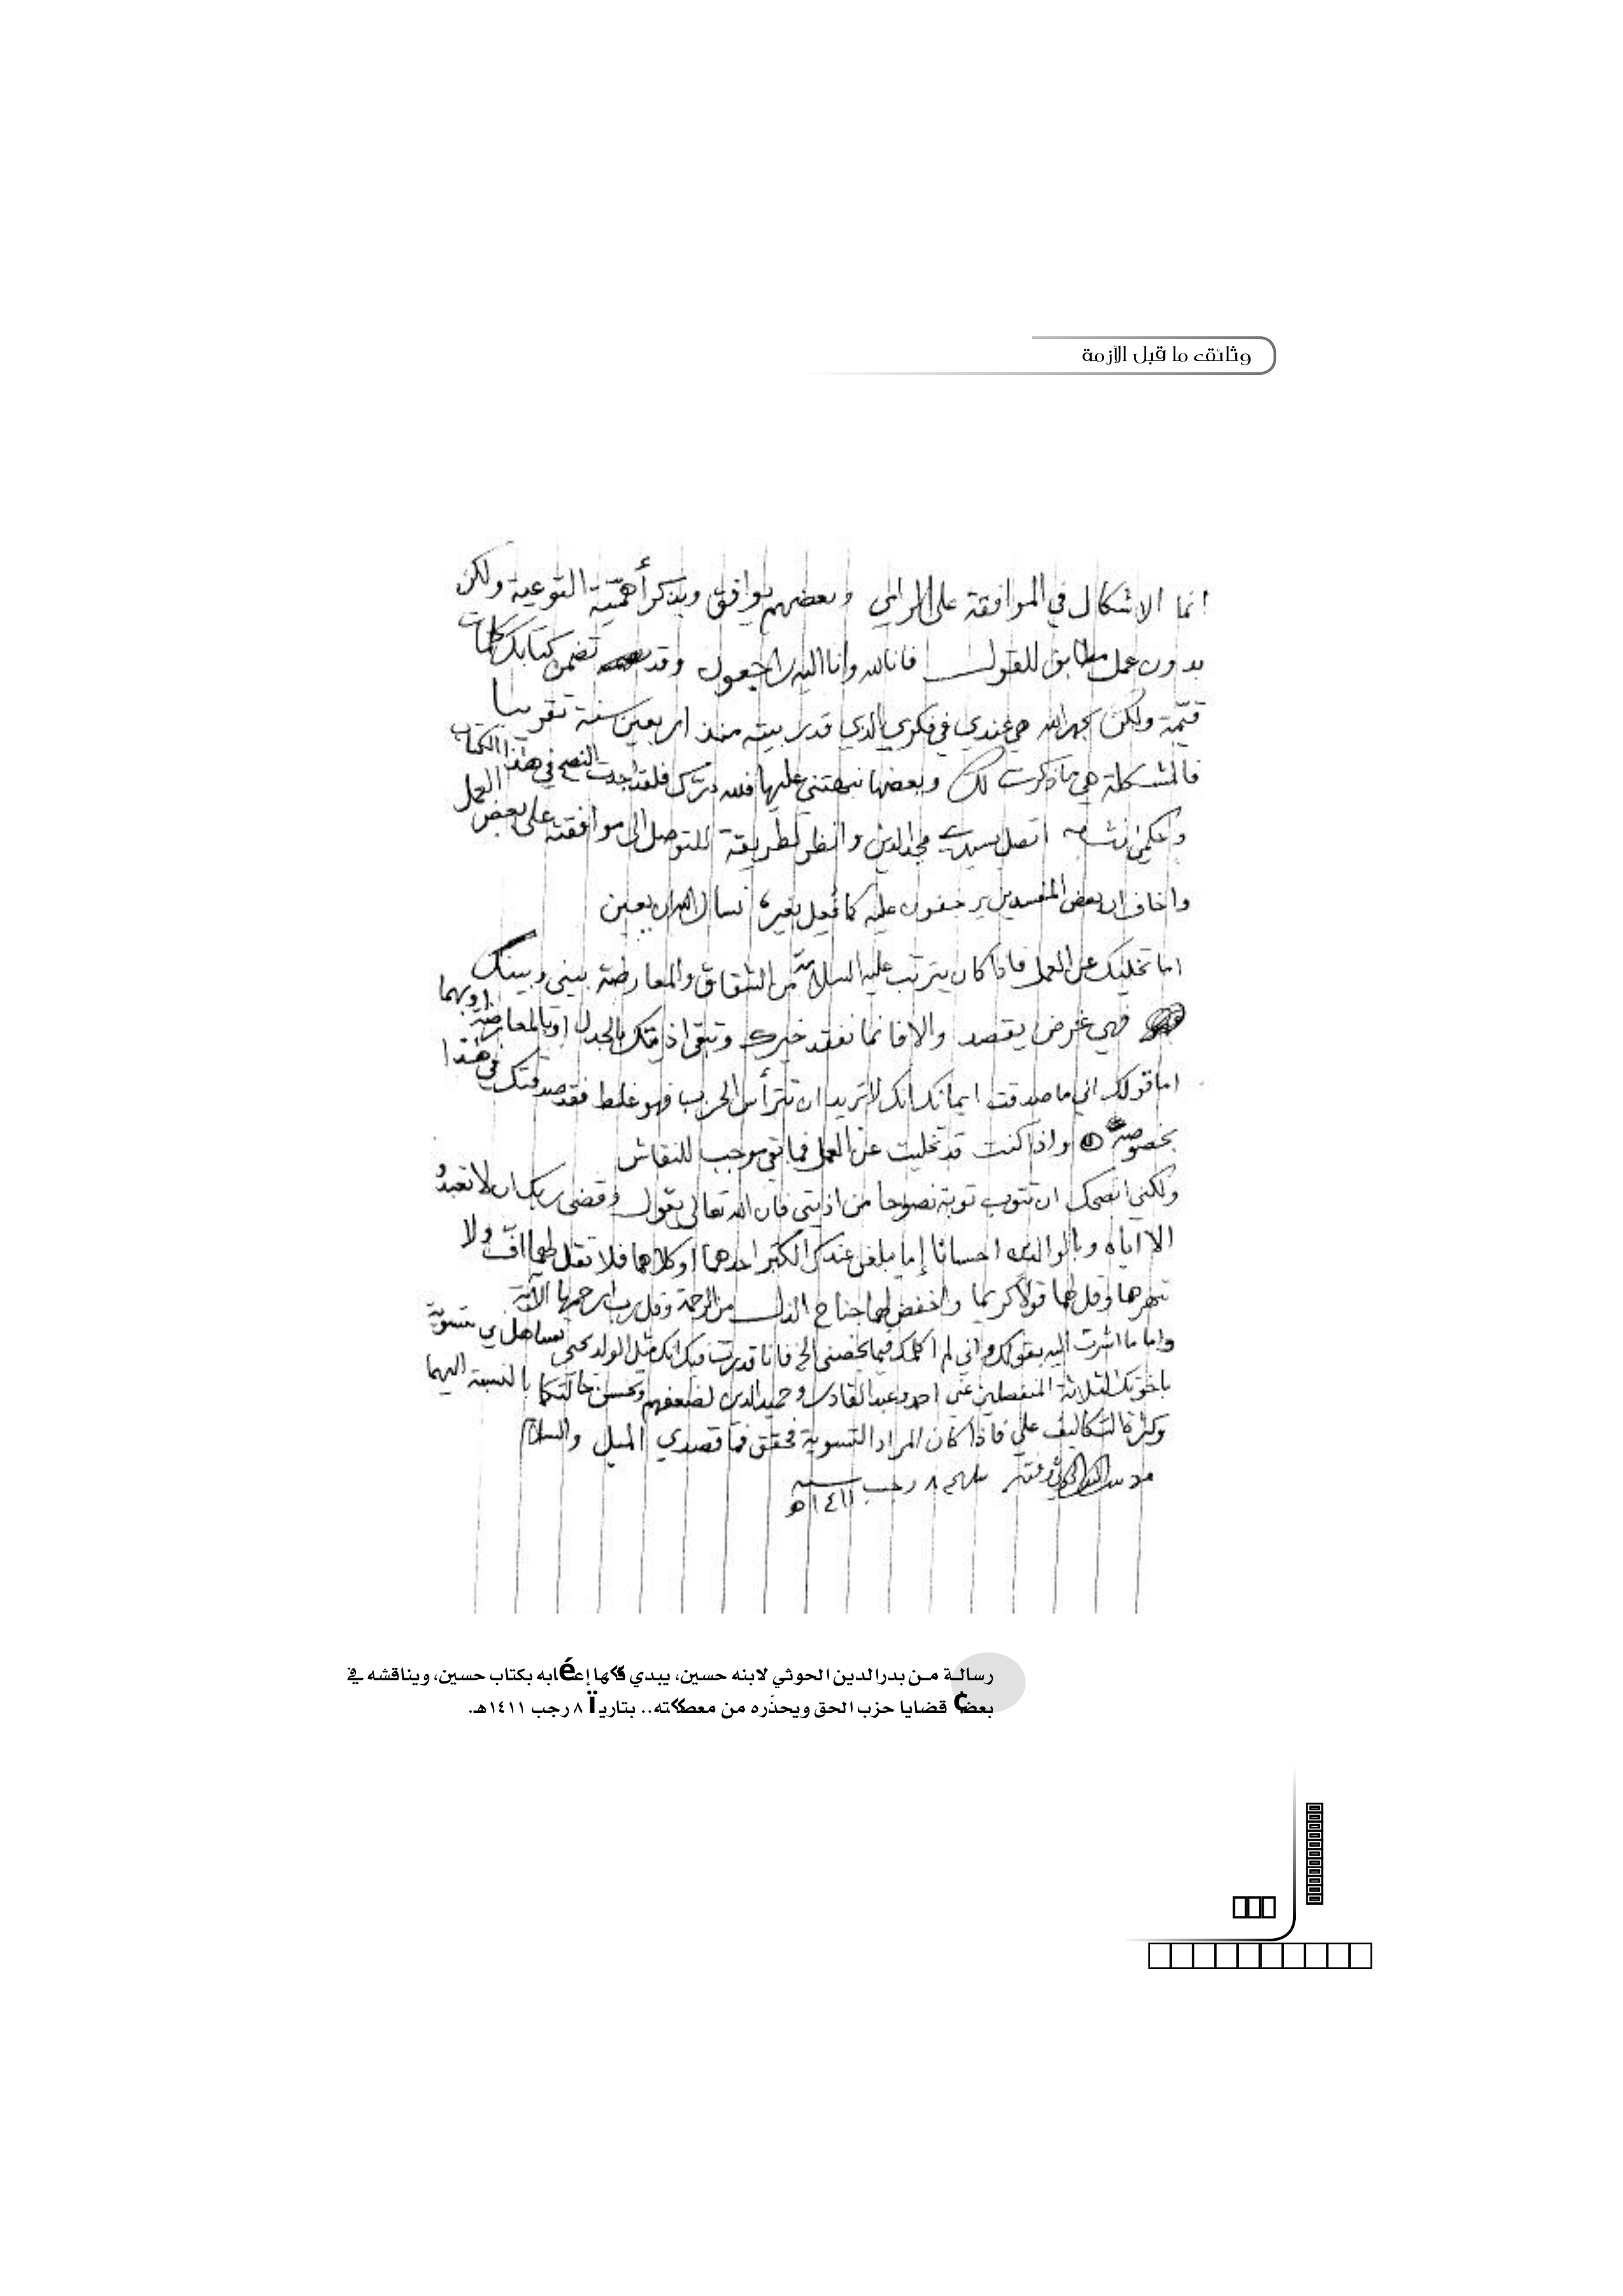 وثائق ما قبل الأزمة
انما الاشكال في الموافقة على الرأي وبعضهم يوافق ويذكر أهمّيّة التوعية ولكن
بدون عمل مطابق للقول فانا لله وانا اليه راجعون وقد تضمن كتابك كلمات
قيّمة ولكن بحمد الله هي عندي في فكري الذي قد ربيته منذ اربعين سنة تقريبا
فالمشكلة هي ما ذكرت لك وبعضها نبهتني عليها فلله درّك فلقد اجدت النصح في هذا الكتاب
اتصل بسيدي مجدالدين وانظر لطريقة للتوصل الى موافقته على بعض العمل
واخاف ان بعض المفسدين يرجفون عليه كما فُعل بغيره نسال الله ان يعين
اما تخليك عن العمل فاذا كان يترتب عليه السلامة من الشقاق والمعارضة بيني وبينك
فهي غرض يقصد والا فانما نفقد خيرك وتبقى اذيتك بالجدل او بالمعارضة او بهما
اما قولك اني ما صدقت ايمانك انك لا تريد ان تترأس الحزب فهو غلط فقد صدقتك في هذا
بخصوصه واذا كنت قد تخليت عن العمل فما بقي موجب للنقاش
ولكني انصحك ان تتوب توبة نصوحا من اذيتي فان الله تعالى يقول وقضى ربك ان لا تعبدو
الا اياه وبالوالدين احسانا إما يبلغن عندك الكبر احدهما او كلاهما فلا تقل لهما افّ ولا
تنهرهما وقل لهما قولاً كريما واخفض لهما جناح الذل من الرحمة وقل رب ارحمهما الآية
واما ما اشرت اليه بقولك واني لم اكلمك فيما يخصني الخ فانا قد رتبت فيك انك مثل الولد يحيى تساهل في تسوية
باخوتك الثلاثة المنفصلين عني احمد وعبدالقادر وحميدالدين لضعفهم وتحسن حالتكما بالنسبة اليهما
وكثرة التكاليف علي فاذا كان المراد التسوية فحقق فما قصدي الميل والسلام
٨ رجب سنة ١٤١١هـ
رسالة من بدرالدين الحوثي لابنه حسين، يبدي إعéابه بكتاب حسين، ويناقشه في
بعض قضايا حزب الحق ويحذّره من .. بتاريÏ ٨ رجب ١٤١١هـ.